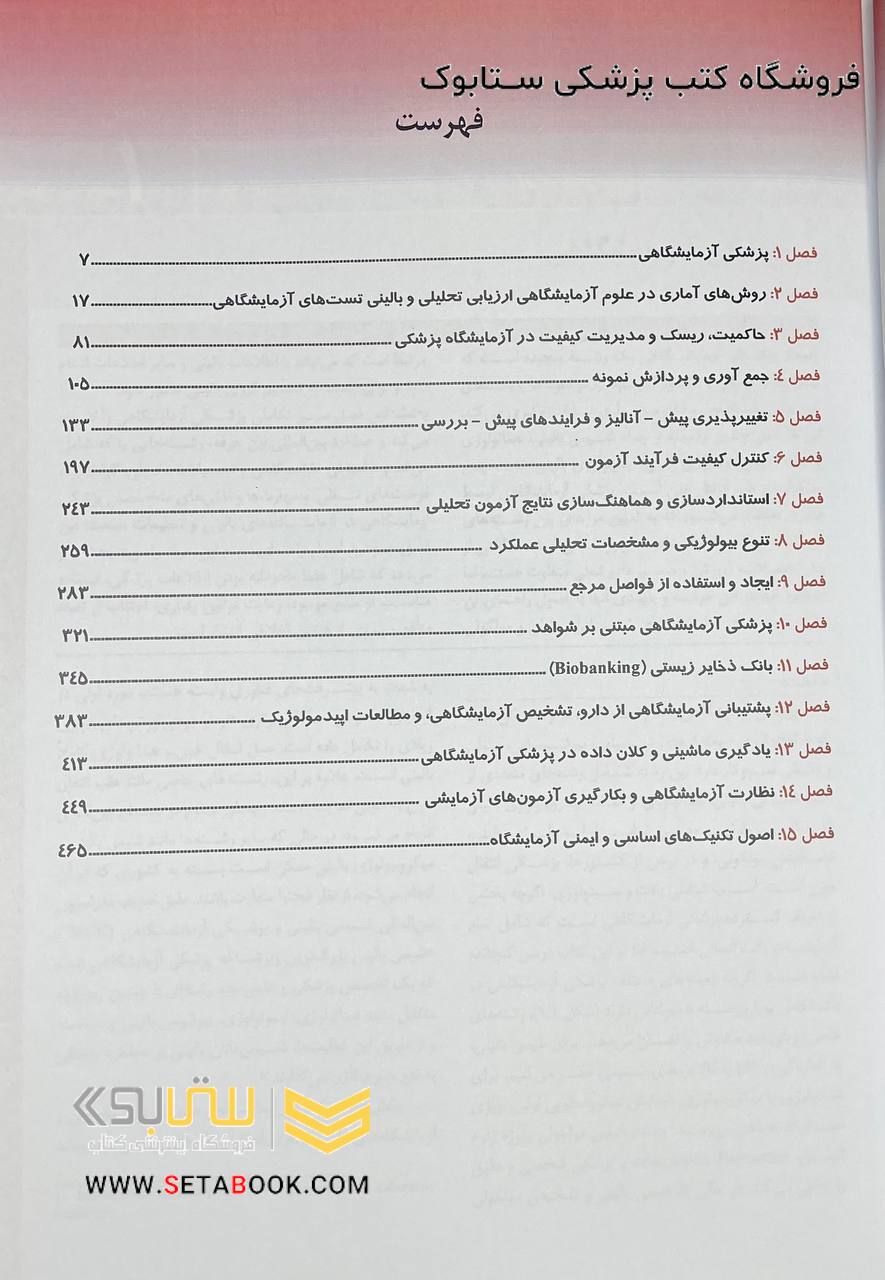 فروشگاه کتب پزشکی ستابوک
فهرست
فصل ۱: پزشکی آزمایشگاهی ۷
فصل ۲: روش‌های آماری در علوم آزمایشگاهی ارزیابی تحلیلی و بالینی تست‌های آزمایشگاهی ۱۷
فصل ۳: حاکمیت، ریسک و مدیریت کیفیت در آزمایشگاه پزشکی ۸۱
فصل ۴: جمع آوری و پردازش نمونه ۱۰۵
فصل ۵: تغییرپذیری پیش – آنالیز و فرایندهای پیش – بررسی ۱۳۳
فصل ۶: کنترل کیفیت فرآیند آزمون ۱۹۷
فصل ۷: استانداردسازی و هماهنگ‌سازی نتایج آزمون تحلیلی ۲۴۳
فصل ۸: تنوع بیولوژیکی و مشخصات تحلیلی عملکرد ۲۵۹
فصل ۹: ایجاد و استفاده از فواصل مرجع ۲۸۳
فصل ۱۰: پزشکی آزمایشگاهی مبتنی بر شواهد ۳۲۱
فصل ۱۱: بانک ذخایر زیستی (Biobanking) ۳۴۵
فصل ۱۲: پشتیبانی آزمایشگاهی از دارو، تشخیص آزمایشگاهی، و مطالعات اپیدمولوژیک ۳۸۳
فصل ۱۳: یادگیری ماشینی و کلان داده در پزشکی آزمایشگاهی ۴۱۳
فصل ۱۴: نظارت آزمایشگاهی و بکارگیری آزمون‌های آزمایشی ۴۴۹
فصل ۱۵: اصول تکنیک‌های اساسی و ایمنی آزمایشگاه ۴۶۵
ستابوک
فروشگاه اینترنتی کتاب
WWW.SETABOOK.COM